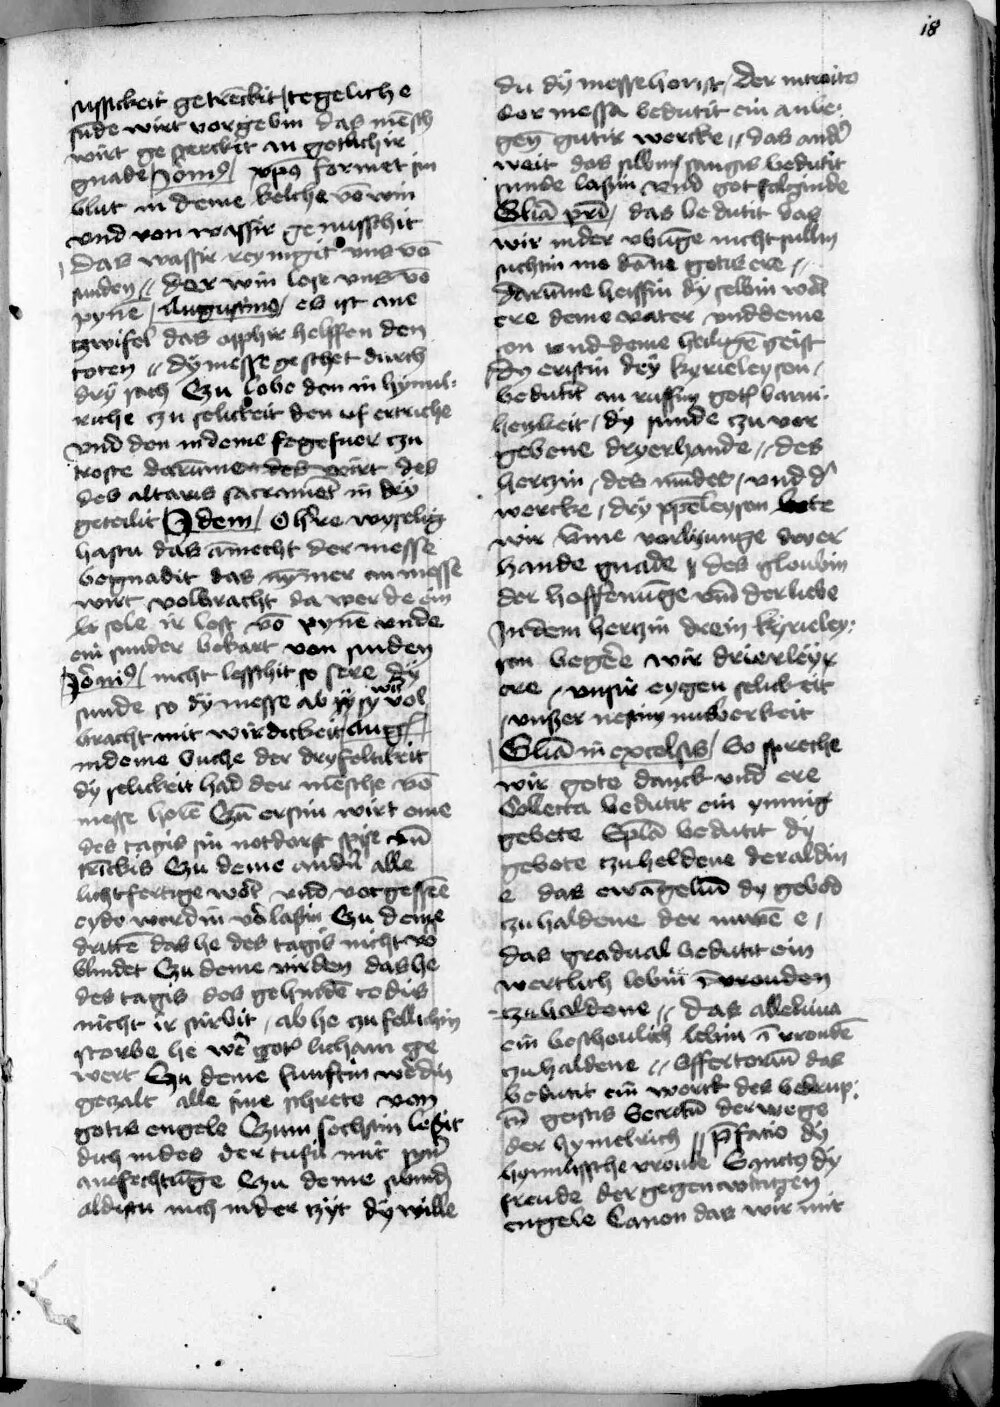 18
sussickeit getrēckit / tegeliche
sūde wirt vorgebin das mēsch
wirt gesterckit an gotlichir
gnade / xps formet sin
blut in deme kelche vō win
vnd von wassir gemusschit
das wassir reynigit vns vō
sunden // der win lose vns vō
pyne / Augustinus / es ist ane
tzwifel das opphir helffen den
toten // dy messe geschet durch
dry sach Czu lobe den in hymil-
riche czu selickeit den uf ertriche
vnd den in deme fegefuer czu
troste darūme des wirt des
des altaris sacramēt in dry
geteilit Idem / O h're wyselig
hastu das āmecht der messe
begnadit das nÿmer ein messe
wirt volbracht da werde ein
sele ir lost vō pyne vnde
ein sunder bekart von sunden
nicht lesschit so sere dy
sunde so dy messe ab sy wirt vol
bracht mit wirdickeit Aug9
in deme buche der dryfeltikeit
dy selickeit had der mēsche vō
messe horē Czu ersten wirt eme
des tagis sin notdorft spise vn̄
trāckis Czu deme andn̄ alle
lichtfertige wort vnd vorgessene
eyde werdin v'lasin Czu deme
drittē das he des tagis nicht vor
blindet Czu deme virden das he
des tagis des gehindē todis
nicht ir stirbit / ab he czufellichin
storbe he wē got licham ge
wert Czu deme funftin werdin
geczalt alle sine schrete von
gotis engele Czum sechstin lesit
dich in des der tufil mit syn
anefechtūge Czu deme
aldistu nich in der czyt dy wille
du dy messe horist / der introitus
vor messa bedutit ein anhe-
gen gutir wercke // das andir
weit des silbin sangis bedutit
sunde lasin vnd got folginde
Gliā pri / das bedutit das
wir in der vbūge nicht sullin
suchtin me dāne gotis ere //
darūme heissin dy selbin wort
ere deme vater vnd deme
son vnd deme heiligē geist
Dy erstin dry kyrieleyson /
bedutit an ruffin got barm-
herczkeit / dy sunde czu vor
gebene dryerhande // des
herczin / des mūdes / vnd d'
wercke / dry xpeleyson bete
wir vme vorliunge dryer
hande gnade // des gloubin
der hoffenūge vnd der liebe
In dem herczin drein kyrieley-
son begere wir drierleyx
ere / vnsir eygen selickeit
/ vnßer nestin nuczberkeit
Gliā in excelsis / So spreche
wir gote danck vnd ere
Collecta bedutit ein ynnig
gebete Epla bedutit dy
gebote czu heldene der aldin
e das ewāgeliū dy gebod
czu haldene der nuwē e /
das gradual bedutit ein
wertlich lebin ī vrouden
czu haldene // das alleluia
ein beschoulich lebin ī vroudē
czu haldene // Offertoriū das
bedutit ein werck des bedrup-
tin geistis Secretū der wege
der hymelrich // pfacio dy
hymilissche vroude Sanctus dy
freude der gegenwertigen
engele Canon das wir mit